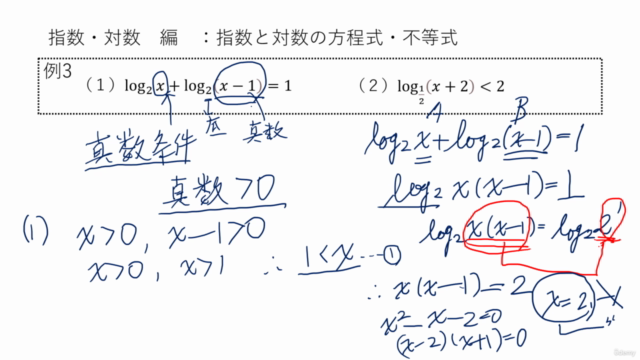 指数・対数　編　：指数と対数の方程式・不等式
例3
（1）log₂x + log₂(x − 1) = 1　（2）log_{1/2}(x + 2) < 2
底　真数
真数条件
真数 > 0
(1) x>0, x−1>0
x>0, x>1 ∴ 1<x ---①
A B
log₂x + log₂(x−1) = 1
log₂ x(x−1) = 1
log₂ x(x−1) = log₂2¹
∴ x(x−1) = 2
x² − x − 2 = 0
(x−2)(x+1) = 0
x = 2,